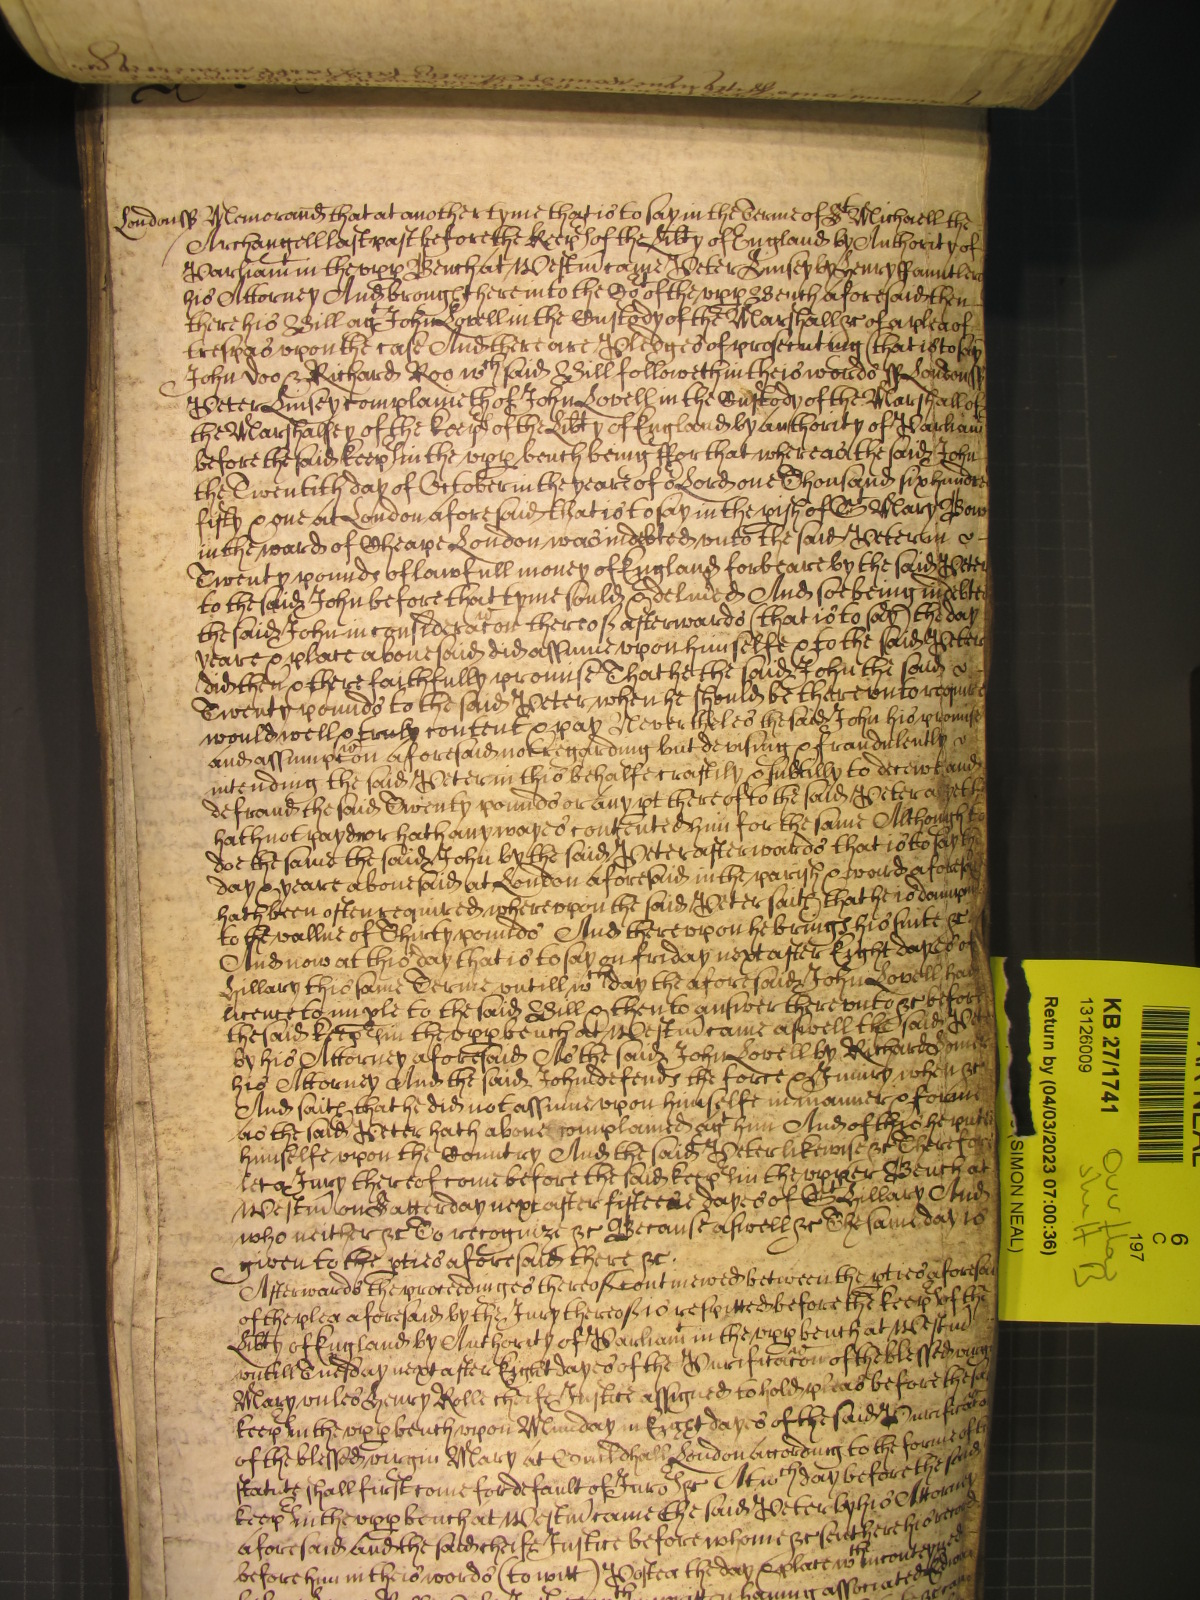 London ss Memorand that at another tyme that is to say in the Terme of St Michaell the
Archangell last past before the keeps of the Libty of England by Authority of
Parliamt in the vpp Bench at Westm came Peter Linsey by Henry ffauntler
his Attorney And brought here into the Cot of the vpp Bench aforesaid then
there his Bill agt John Lovell in the Custody of the Marshall &c of a plea of
trespas vpon the case And there are Pledges of prosecuting (that is to say
John Doo & Richard Roo wch said Bill followeth in theis words ss London ss
Peter Linsey complaineth of John Lovell in the Custody of the Marshall of
the Marshalsey of the keeps of the Libty of England by authority of Parliam
before the said keeps in the vpp bench being ffor that whereas the said John
the Twentith day of October in the yeare of or Lord one Thousand six hundre
fifty & one at London aforesaid that is to say in the pish of St Mary Bow
in the ward of Cheape London was indebted vnto the said Peter in &
Twenty pounds of lawfull money of England for beare by the said Peter
to the said John before that tyme sould & deliued And soe being indebted
the said John in consideracon thereof afterwards (that is to say) the day
yeare & place abouesaid did assume vpon himselfe & to the said Peter
did then & there faithfully promise That he the said John the said &
Twenty pounds to the said Peter when he should be therevnto require
would well & truly content & pay Neuertheles the said John his promise
and assumpcon aforesaid not regarding but devising & fraudulently &
intending the said Peter in this behalfe craftily & subtilly to deceive and
defraud the said Twenty pounds or any pt thereof to the said Peter
hath not payd nor hath any wayes contented him for the same Although to
doe the same the said John by the said Peter afterwards that is to say the
day & yeare abouesaid at London aforesaid in the parish & ward aforesaid
hath been often required wherevpon the said Peter saith that he is
to the vallue of Thirty pounds And therevpon he brings his suite &c
And now at this day that is to say on friday next after Eight dayes of
Hillary this same Terme vntill wch day the aforesaid John Lovell had
licence to imple to the said Bill & then to answer therevnto &c before
the said keeps in the vpp bench at Westm came aswell the said Peter
by his Attorney aforesaid As the said John Lovell by Richard
his Attorney And the said John defends the force & Iniury when &c
And saith that he did not assume vpon himselfe in manner & forme
as the said Peter hath aboue complained agt him And of this he putes
himselfe vpon the Country And the said Peter likewise &c Therefore
let a Jury thereof come before the said keeps in the vpper Bench at
Westm on Satterday next after fifteene dayes of St Hillary And
who neither &c To recognize &c Because aswell &c The same day is
given to the pties aforesaid there &c.
Afterwards the proceedinges thereof continewed betweene the pties aforesaid
of the plea aforesaid by the Jury thereof is respitted before the keeps of the
Libty of England by Authority of Parliamt in the vpp bench at Westm
vntill Tuesday next after Eight dayes of the Purificacon of the blessed virgin
Mary vnles Henry Rolle cheife Justice assigned to hold pleas before the said
keeps in the vpp bench vpon Munday in Eight dayes of the said Purificaco
of the blessed virgin Mary at Guildhall London according to the forme of the
statute shall first come for default of Jurors &c At wch day before the said
keeps in the vpp bench at Westm came the said Peter by his Attorney
aforesaid And the said cheife Justice before whome &c sent here his record
before him in theis words (to witt) Postea the day & place within conteyned
having associated
KB 27/1741
13126009
Return by (04/03/2023 07:00:36)
SIMON NEAL)
6
C
197